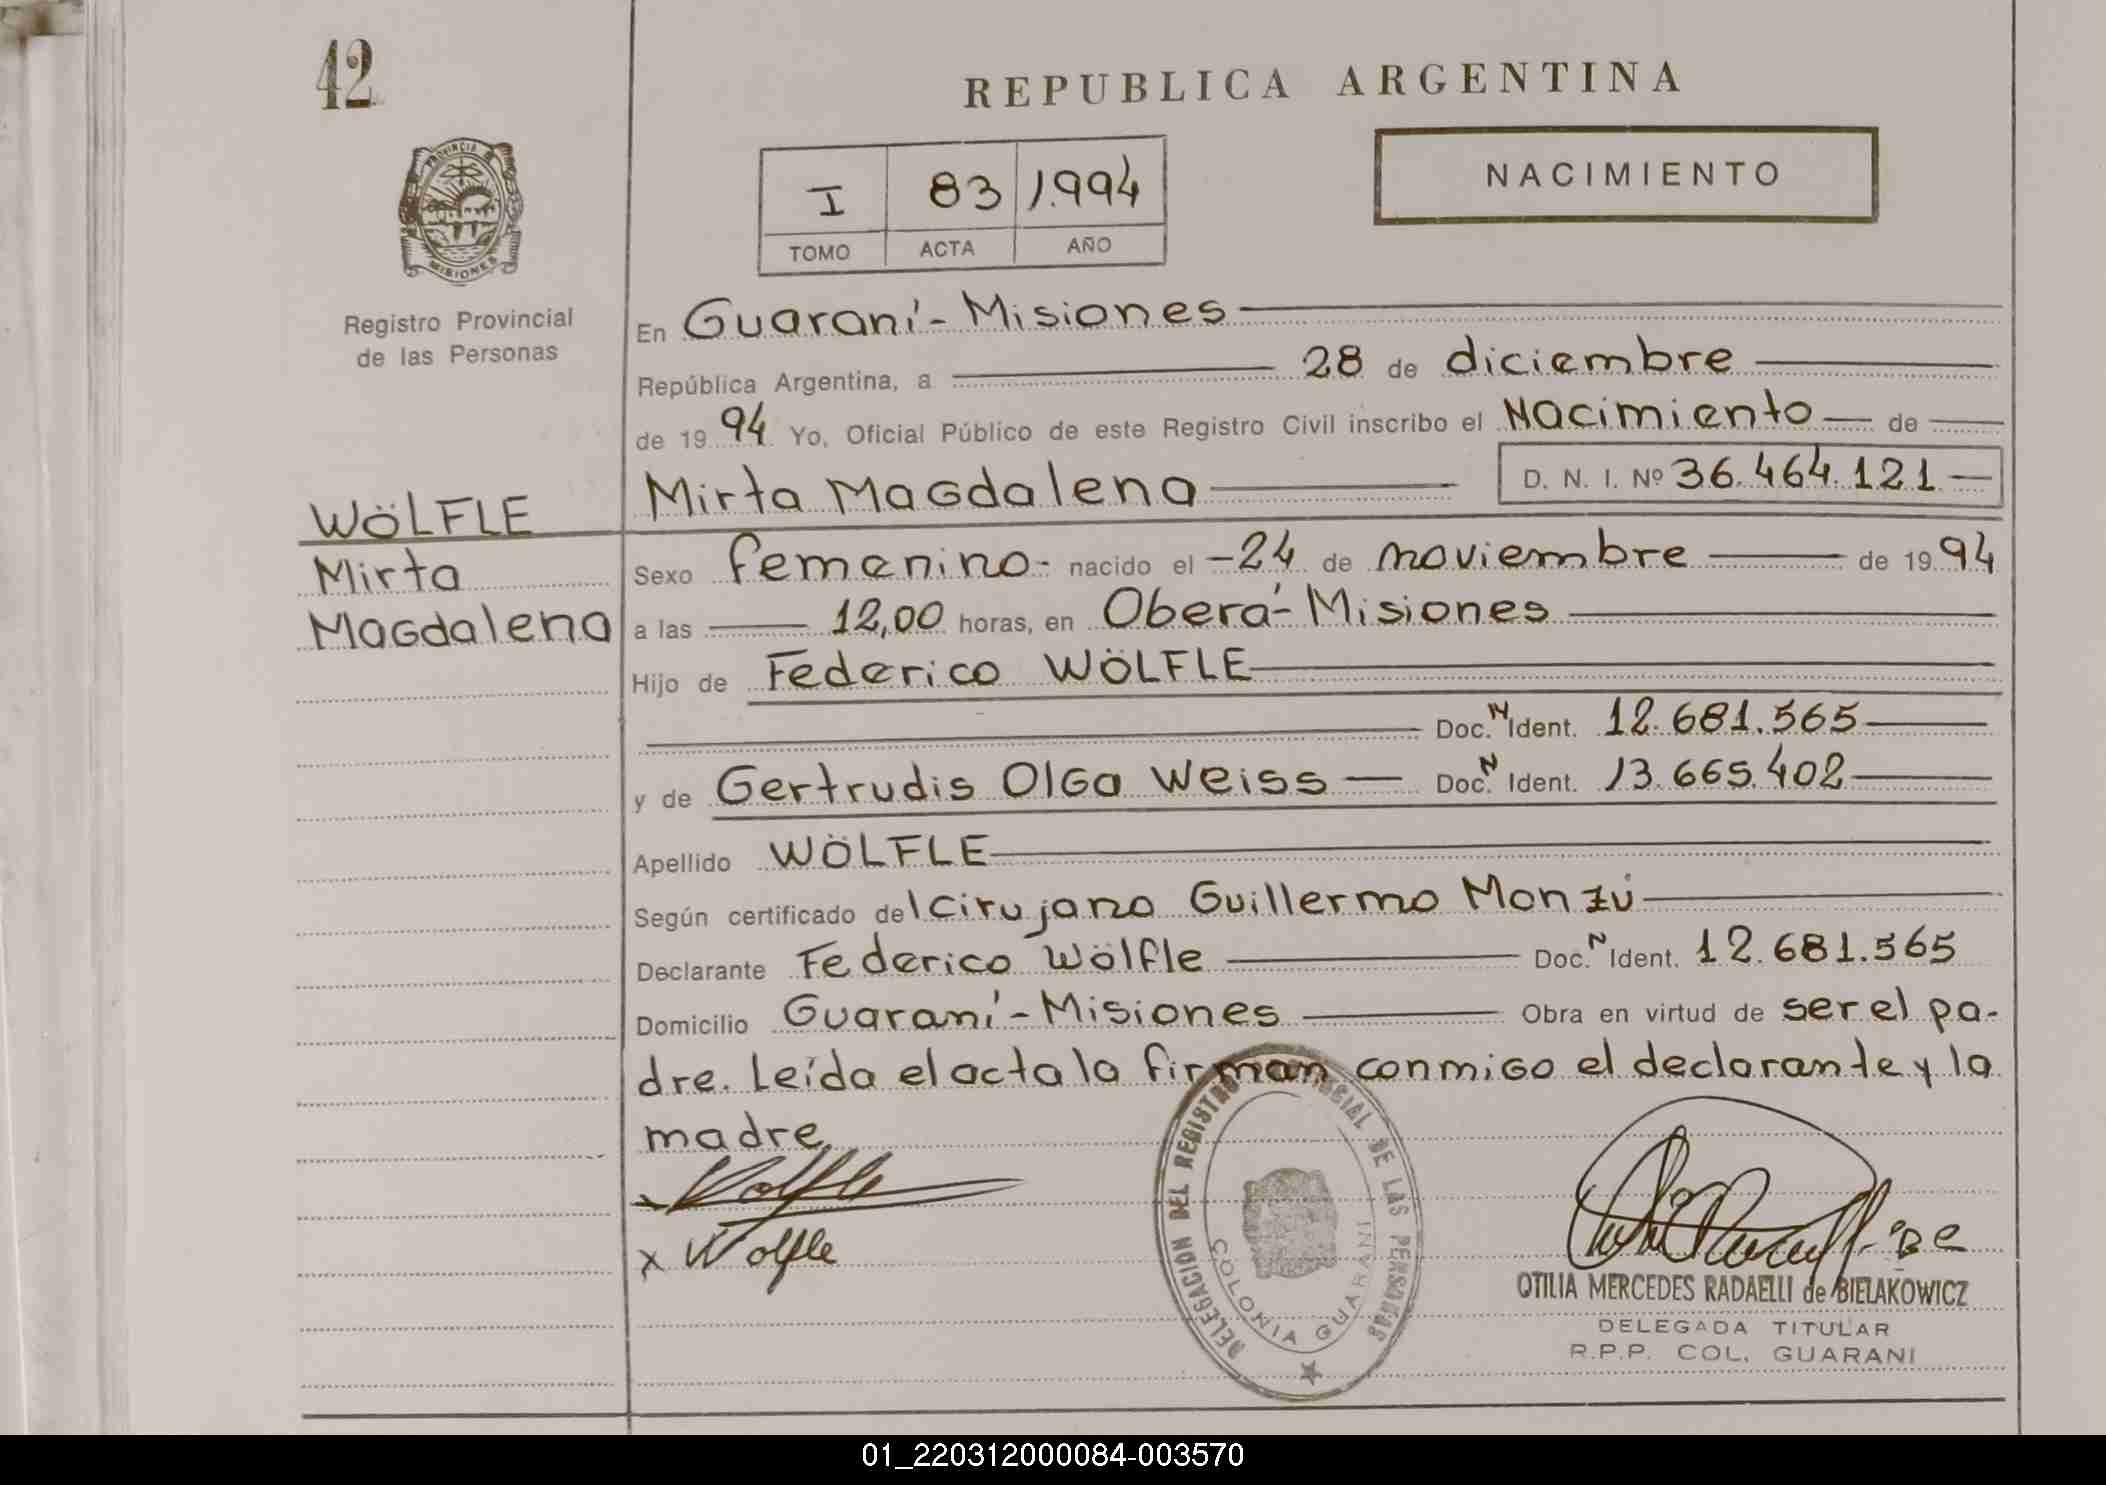 42
REPUBLICA ARGENTINA
PROVINCIA DE MISIONES
Registro Provincial
de las Personas
I 83 1.994
TOMO ACTA AÑO
NACIMIENTO
En Guaraní - Misiones
República Argentina, a 28 de diciembre
de 19 94 Yo, Oficial Público de este Registro Civil inscribo el Nacimiento de
Mirta Magdalena D. N. I. Nº 36.464.121
WÖLFLE
Mirta
Magdalena
Sexo femenino - nacido el - 24 de noviembre de 19 94
a las 12,00 horas, en Oberá - Misiones
Hijo de Federico WÖLFLE
Doc. N Ident. 12.681.565
y de Gertrudis Olga Weiss Doc. N Ident. 13.665.402
Apellido WÖLFLE
Según certificado del cirujano Guillermo Monzú
Declarante Federico Wölfle Doc. N Ident. 12.681.565
Domicilio Guaraní - Misiones Obra en virtud de ser el pa-
dre. Leída el acta la firman conmigo el declarante y la
madre
x Wolfle
x Wolfle
DELEGACION DEL REGISTRO PROVINCIAL DE LAS PERSONAS
COLONIA GUARANI
OTILIA MERCEDES RADAELLI de BIELAKOWICZ
DELEGADA TITULAR
R.P.P. COL. GUARANI
01_220312000084-003570